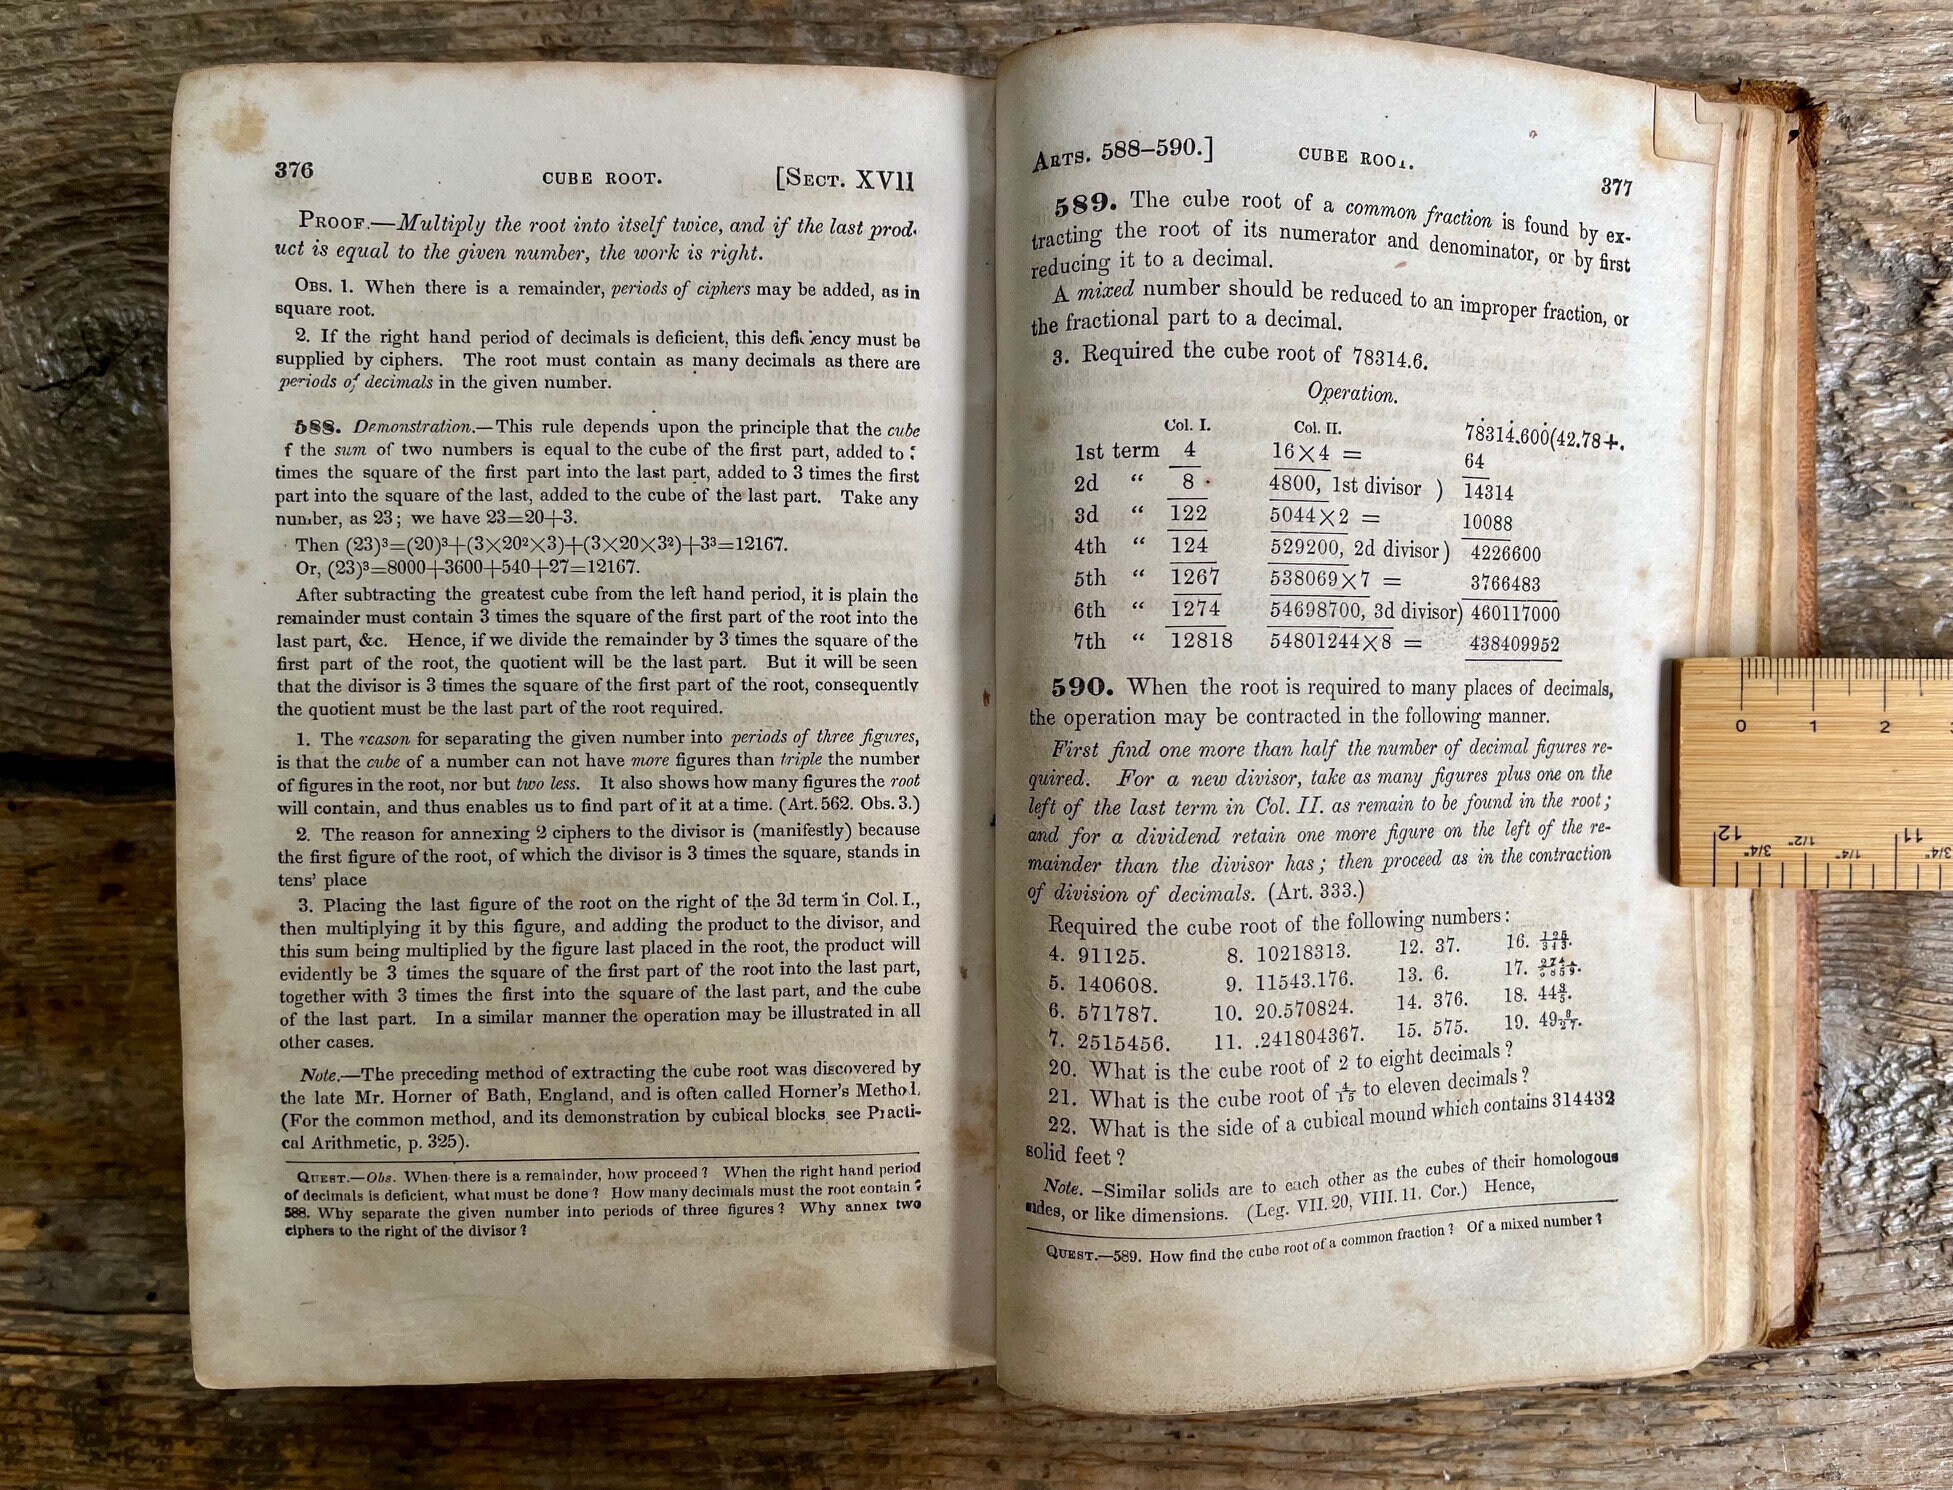 376 CUBE ROOT. [SECT. XVII
PROOF.—Multiply the root into itself twice, and if the last prod-
uct is equal to the given number, the work is right.
OBS. 1. When there is a remainder, periods of ciphers may be added, as in
square root.
2. If the right hand period of decimals is deficient, this deficiency must be
supplied by ciphers. The root must contain as many decimals as there are
periods of decimals in the given number.
588. Demonstration.—This rule depends upon the principle that the cube
f the sum of two numbers is equal to the cube of the first part, added to
times the square of the first part into the last part, added to 3 times the first
part into the square of the last, added to the cube of the last part. Take any
number, as 23; we have 23=20+3.
Then (23)³=(20)³+(3×20²×3)+(3×20×3²)+3³=12167.
Or, (23)³=8000+3600+540+27=12167.
After subtracting the greatest cube from the left hand period, it is plain the
remainder must contain 3 times the square of the first part of the root into the
last part, &c. Hence, if we divide the remainder by 3 times the square of the
first part of the root, the quotient will be the last part. But it will be seen
that the divisor is 3 times the square of the first part of the root, consequently
the quotient must be the last part of the root required.
1. The reason for separating the given number into periods of three figures,
is that the cube of a number can not have more figures than triple the number
of figures in the root, nor but two less. It also shows how many figures the root
will contain, and thus enables us to find part of it at a time. (Art. 562. Obs. 3.)
2. The reason for annexing 2 ciphers to the divisor is (manifestly) because
the first figure of the root, of which the divisor is 3 times the square, stands in
tens' place
3. Placing the last figure of the root on the right of the 3d term in Col. I.,
then multiplying it by this figure, and adding the product to the divisor, and
this sum being multiplied by the figure last placed in the root, the product will
evidently be 3 times the square of the first part of the root into the last part,
together with 3 times the first into the square of the last part, and the cube
of the last part. In a similar manner the operation may be illustrated in all
other cases.
Note.—The preceding method of extracting the cube root was discovered by
the late Mr. Horner of Bath, England, and is often called Horner's Method.
(For the common method, and its demonstration by cubical blocks, see Practi-
cal Arithmetic, p. 325).
QUEST.—Obs. When there is a remainder, how proceed? When the right hand period
of decimals is deficient, what must be done? How many decimals must the root contain?
588. Why separate the given number into periods of three figures? Why annex two
ciphers to the right of the divisor?
ARTS. 588–590.] CUBE ROOT. 377
589. The cube root of a common fraction is found by ex-
tracting the root of its numerator and denominator, or by first
reducing it to a decimal.
A mixed number should be reduced to an improper fraction, or
the fractional part to a decimal.
3. Required the cube root of 78314.6.
Operation.
Col. I. Col. II. 78314.600(42.78+.
1st term 4 16×4 = 64
2d " 8 4800, 1st divisor ) 14314
3d " 122 5044×2 = 10088
4th " 124 529200, 2d divisor) 4226600
5th " 1267 538069×7 = 3766483
6th " 1274 54698700, 3d divisor) 460117000
7th " 12818 54801244×8 = 438409952
590. When the root is required to many places of decimals,
the operation may be contracted in the following manner.
First find one more than half the number of decimal figures re-
quired. For a new divisor, take as many figures plus one on the
left of the last term in Col. II. as remain to be found in the root;
and for a dividend retain one more figure on the left of the re-
mainder than the divisor has; then proceed as in the contraction
of division of decimals. (Art. 333.)
Required the cube root of the following numbers:
4. 91125. 8. 10218313. 12. 37. 16. 125/343.
5. 140608. 9. 11543.176. 13. 6. 17.
6. 571787. 10. 20.570824. 14. 376. 18. 44 3/5.
7. 2515456. 11. .241804367. 15. 575. 19. 49 8/27.
20. What is the cube root of 2 to eight decimals?
21. What is the cube root of 4/15 to eleven decimals?
22. What is the side of a cubical mound which contains 314432
solid feet?
Note.—Similar solids are to each other as the cubes of their homologous
sides, or like dimensions. (Leg. VII. 20, VIII. 11. Cor.) Hence,
QUEST.—589. How find the cube root of a common fraction? Of a mixed number?
0 1 2
12 3/4" 1/2" 1/4" 11 3/4"